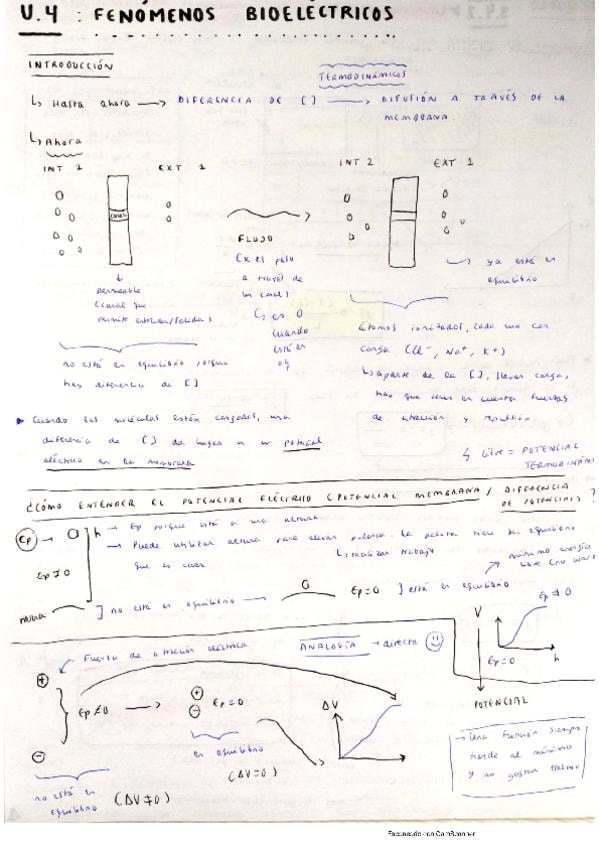 U.4 : FENÓMENOS BIOELÉCTRICOS
INTRODUCCIÓN
TERMODINÁMICOS
↳ Hasta ahora → DIFERENCIA DE [ ] → DIFUSIÓN A TRAVÉS DE LA MEMBRANA.
↳ Ahora
INT 2 EXT 1
INT 2 EXT 1
CANAL
FLUJO
(x el paso
a través de
un canal)
↳ es 0
cuando
está en
eq
permeable
(canal que
permite entradas/salidas)
no está en equilibrio porque
hay diferencia de [ ]
ya está en
equilibrio
átomos ionizados, cada uno con
carga (Cl⁻, Na⁺, K⁺)
↳ aparte de la [ ], llevar carga,
hay que tener en cuenta fuerzas
de atracción y repulsión.
Cuando las moléculas están cargadas, una
diferencia de [ ] da lugar a un potencial
eléctrico en la membrana
↳ libre = POTENCIAL
¿CÓMO ENTENDER EL POTENCIAL ELÉCTRICO (POTENCIAL MEMBRANA / DIFERENCIA
DE POTENCIAL) ?
Ep → O h → Ep porque está a una altura
→ Puede utilizar altura para
la pelota tiene su equilibrio
que es caer
↳ realizar trabajo
Ep ≠ 0
] no está en equilibrio → O Ep = 0 ] está en equilibrio
mínima energía
libre
V
Ep ≠ 0
Ep = 0
h
POTENCIAL
Fuerza de atracción eléctrica
ANALOGÍA → directa
+
−
Ep ≠ 0 →
+
−
Ep = 0
en equilibrio
(ΔV = 0)
ΔV
no está en
equilibrio (ΔV ≠ 0)
→ Una función siempre
tiende al mínimo
y no gastar trabajo
Escaneado con CamScanner